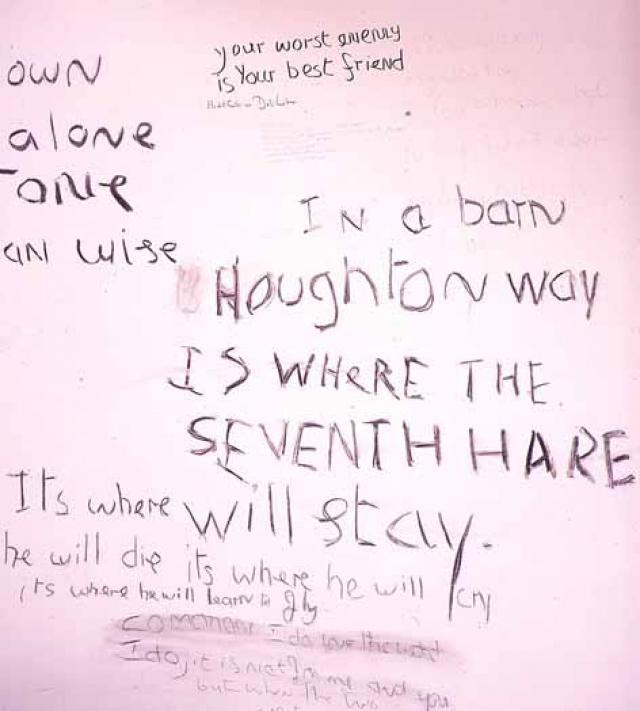 your worst enemy
is your best friend
own
alone
one
an wise
IN a barn
Houghton way
IS WHERE THE
SEVENTH HARE
will stay.
Its where
he will die its where he will cry
its where he will learn to fly
I do love the
I do, it is not for me and you
but when the